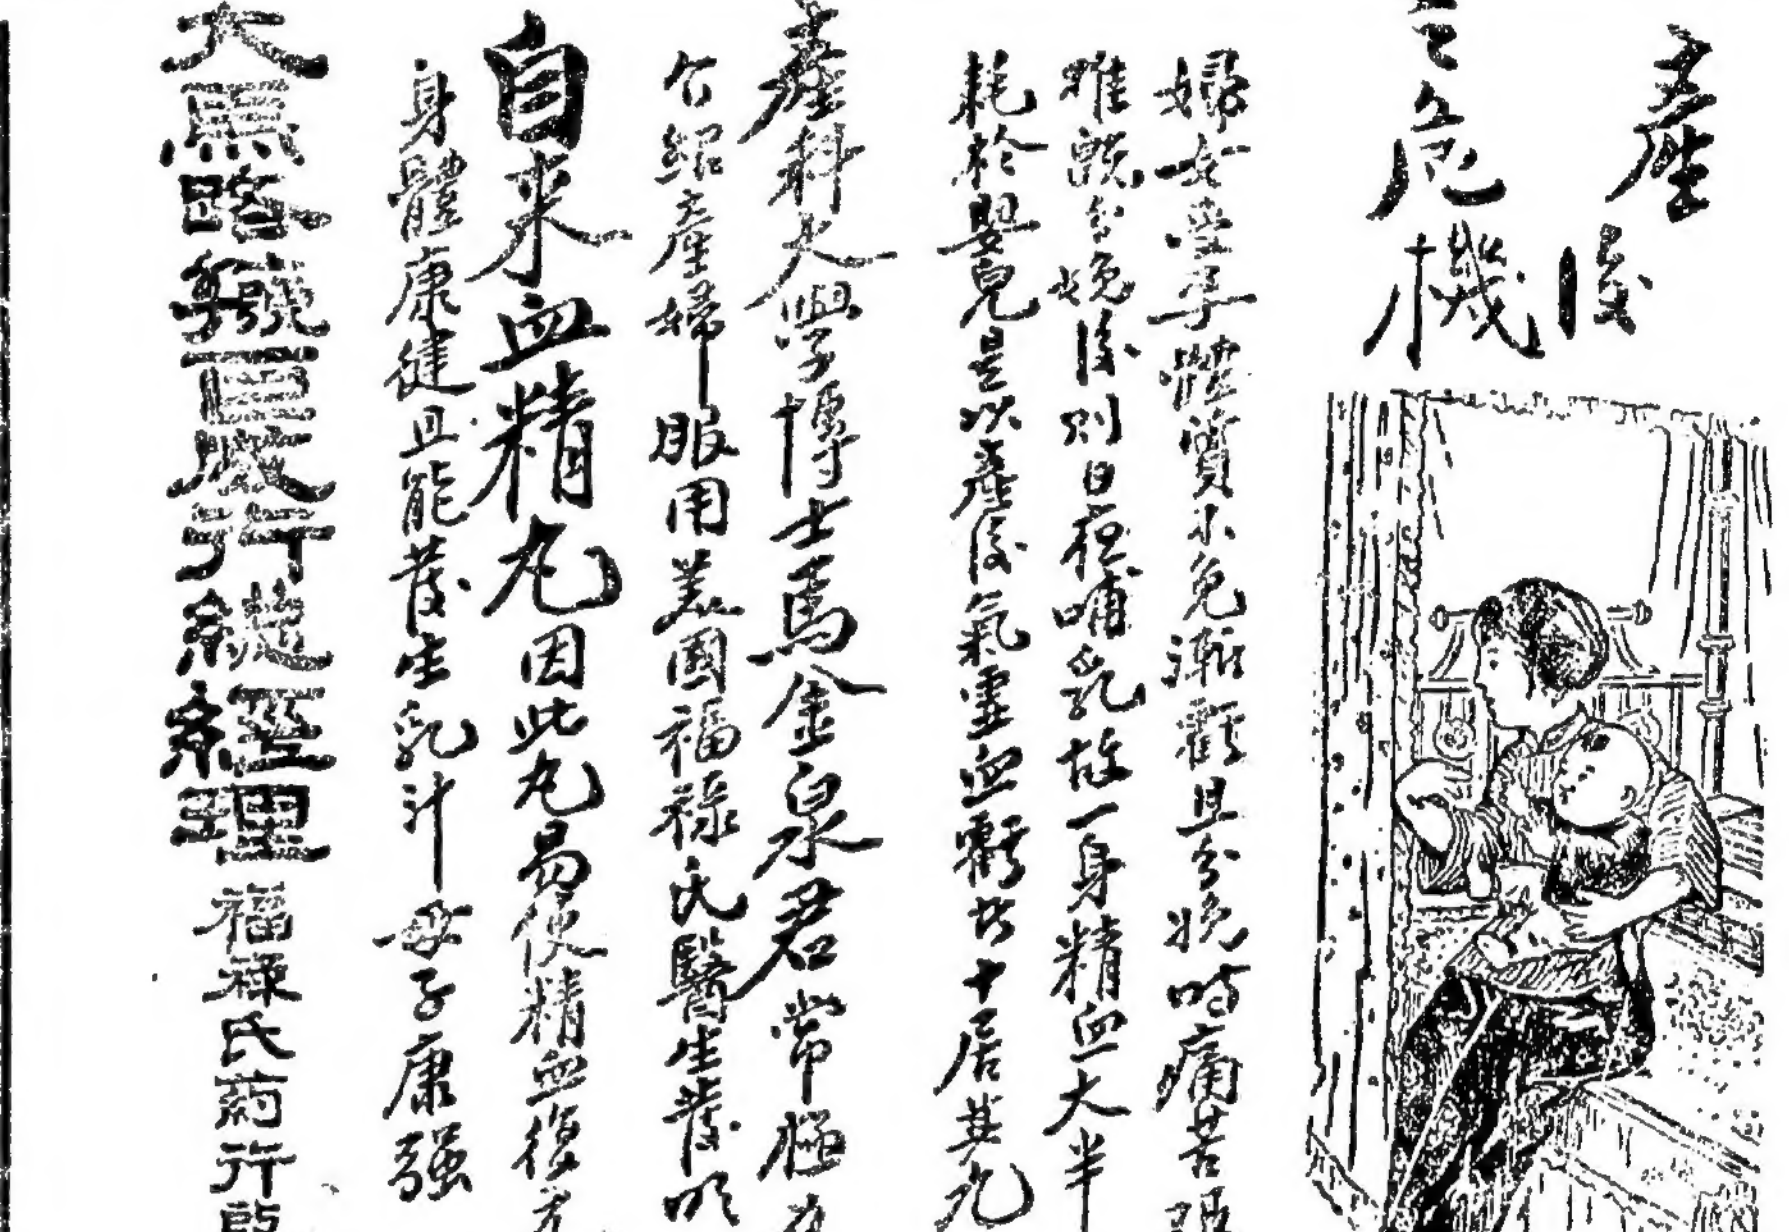 產後
之危機
婦女受孕體質不免漸虧且分娩時痛苦
難既分娩後則日夜哺乳故一身精血大半
耗於嬰兒是以產後氣虛血虧者十居其九
產科大學博士馬金泉君常極力
介紹產婦服用美國福祿氏醫生發明
自來血精丸因此丸易使精血復元
身體康健且能發生乳汁母子康强
大馬路巨成行總經理
福祿氏葯行啟